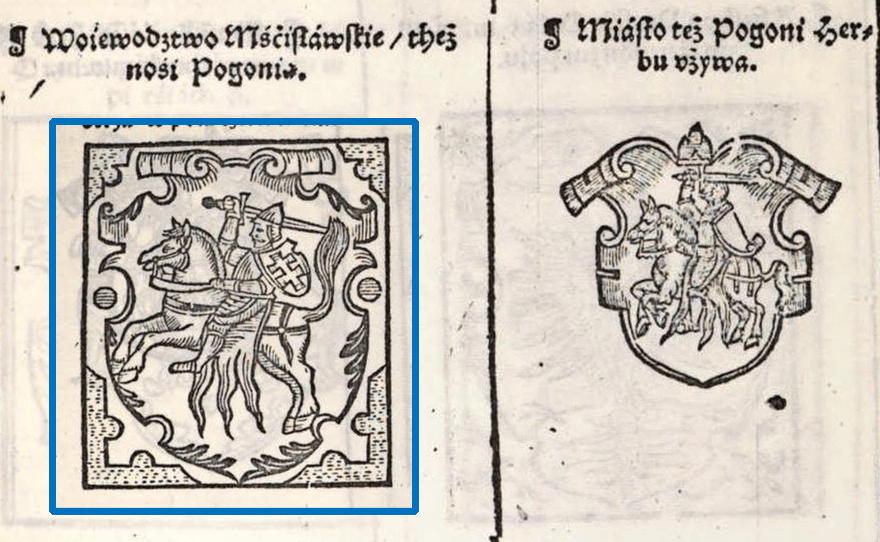 ¶ Woiewodztwo Mśćisłáwskie / theż
nośi Pogonią.
¶ Miásto też Pogoni Her⸗
bu vżywa.